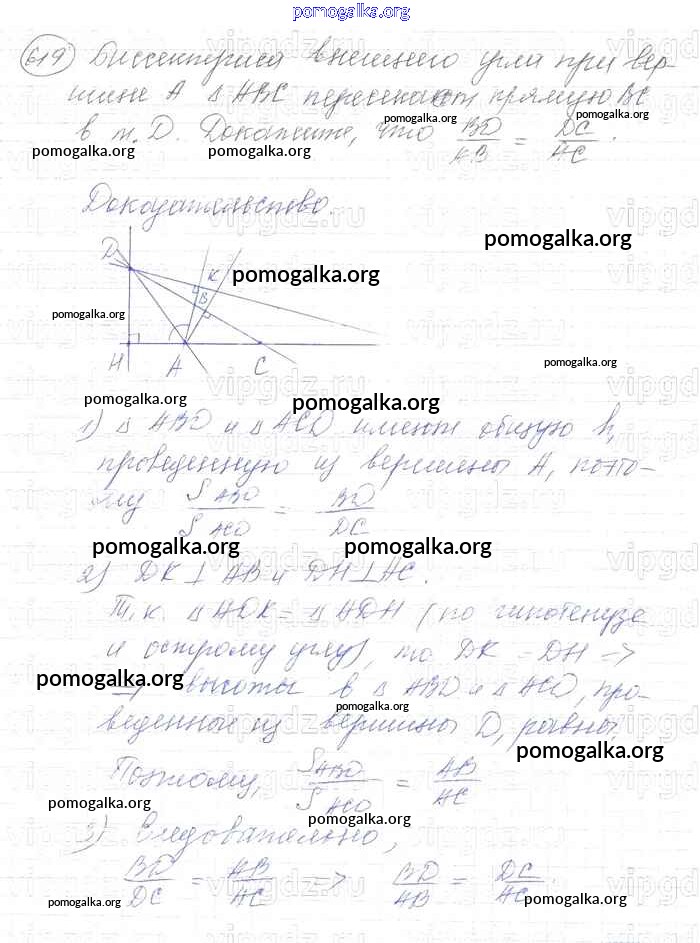 pomogalka.org
619 Биссектриса внешнего угла при вер-
шине А Δ АВС пересекает прямую ВС
в т. D. Докажите, что BD/AB = DC/AC.
pomogalka.org pomogalka.org pomogalka.org pomogalka.org
Доказательство.
vipgdz.ru
pomogalka.org
D K pomogalka.org
B
pomogalka.org
H A C pomogalka.org
pomogalka.org pomogalka.org
1) Δ ABD и Δ ACD имеют общую h,
проведенную из вершины А, поэто-
му S ABD / S ACD = BD / DC
pomogalka.org pomogalka.org
2) DK ⊥ AB и DH ⊥ AC.
Т.к. Δ ADK = Δ ADH (по гипотенузе
и острому углу), то DK = DH =>
pomogalka.org
=> высоты в Δ ABD и Δ ACD, про-
pomogalka.org
веденные из вершины D, равны
pomogalka.org
Поэтому, S ABD / S ACD = AB / AC
pomogalka.org pomogalka.org
3) Следовательно,
BD/DC = AB/AC => BD/AB = DC/AC.
pomogalka.org pomogalka.org